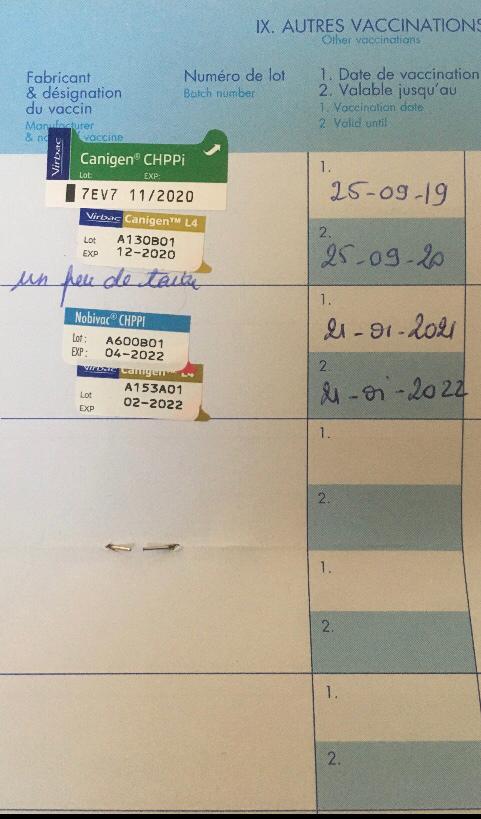 IX. AUTRES VACCINATIONS
Other vaccinations
Fabricant
& désignation
du vaccin
Manufacturer
& vaccine
Numéro de lot
Batch number
1. Date de vaccination
2. Valable jusqu'au
1. Vaccination date
2. Valid until
Virbac
Canigen® CHPPi
Lot: EXP:
7EV7 11/2020
Virbac Canigen™ L4
Lot A130B01
EXP 12-2020
1.
25-09-19
2.
25-09-20
un peu de tartre
Nobivac® CHPPI
Lot: A600B01
EXP: 04-2022
Virbac Canigen™ L4
Lot A153A01
EXP 02-2022
1.
21-01-2021
2.
21-01-2022
1.
2.
1.
2.
1.
2.